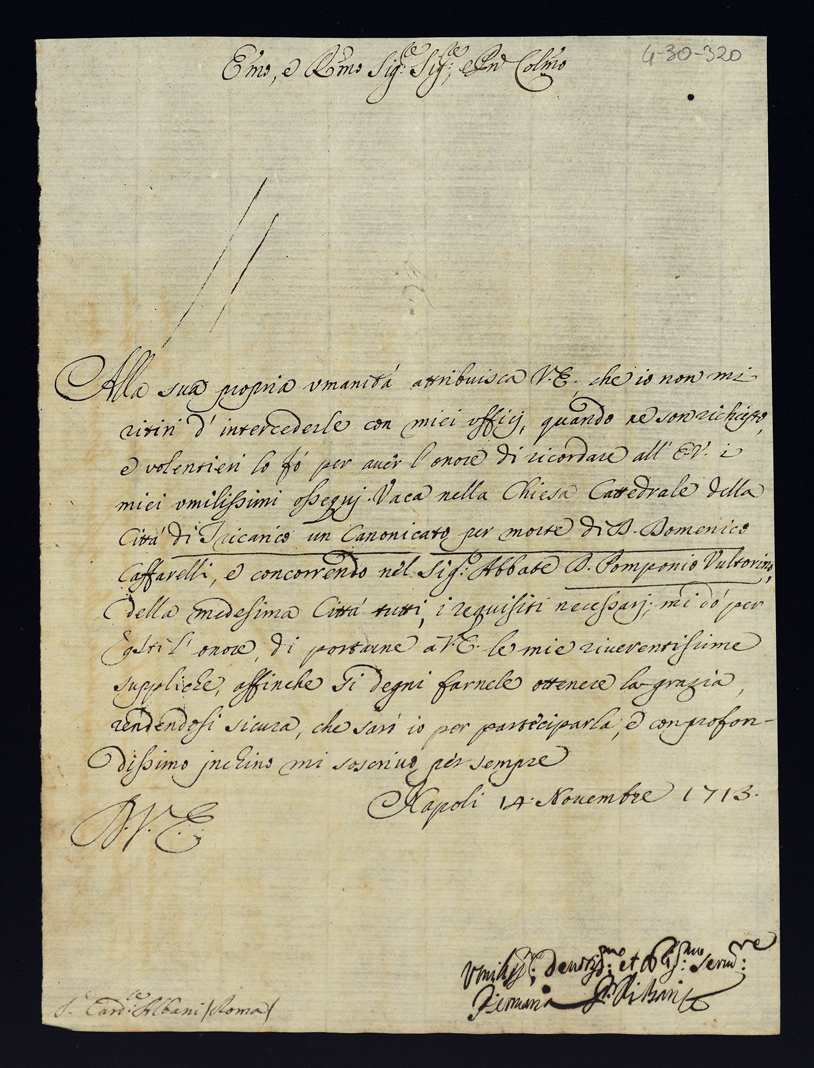 4-30-320
Emo, e Rmo Sig:re Sig:re, e Pn Colmo
Alla sua propria umanità attribuisca V.E. che io non mi
ritiri d'intercederle con miei ufficij, quando ne son richiesto,
e volentieri lo fò per aver l'onore di ricordare all' E.V. i
miei umilissimi ossequj. Vaca nella Chiesa Cattedrale della
Città di Tricarico un Canonicato per morte di D. Domenico
Caffarelli, e concorrendo nel Sig:r Abbate D. Pomponio Vultorino,
della medesima Città tutti i requisiti necessarj; mi dò per
l'onore, di portarne a V.E. le mie riverentissime
suppliche, affinche si degni farnele ottenere la grazia,
rendendosi sicura, che sarò io per parteciparla, e con profon-
dissimo inchino mi soscrivo per sempre
Napoli 14 Novembre 1713.
D.V.E.
Umiliss:o devotiss:mo et Obligs:mo serv:re
S.r Card:le Albani (Roma)